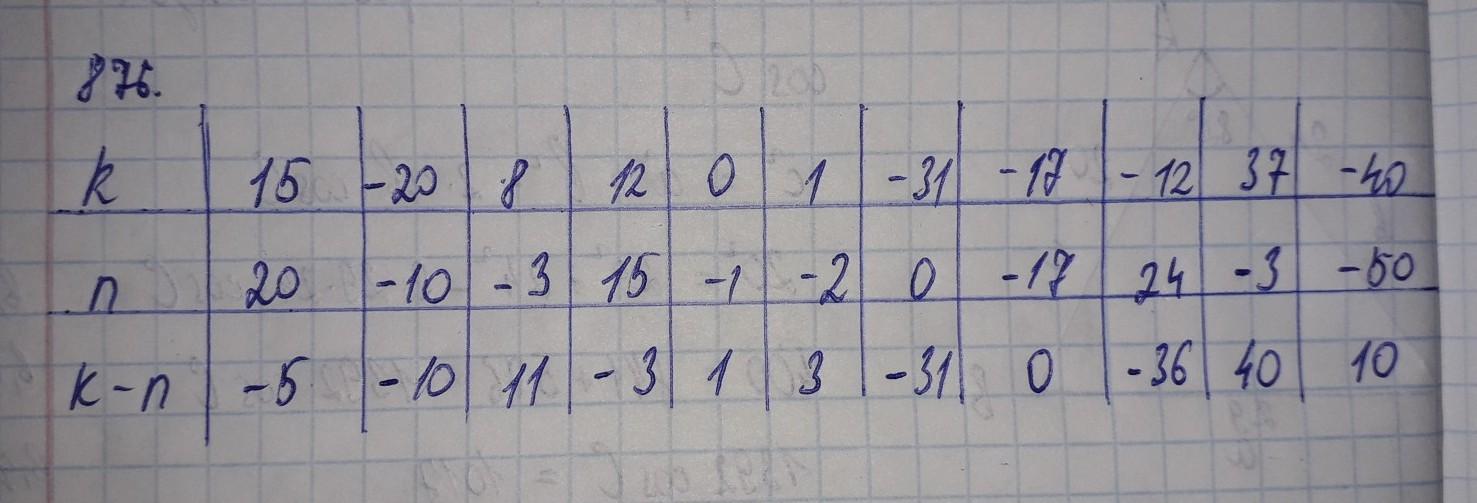 876.
k 15 -20 8 12 0 1 -31 -17 -12 37 -40
n 20 -10 -3 15 -1 -2 0 -17 24 -3 -50
k-n -5 -10 11 -3 1 3 -31 0 -36 40 10